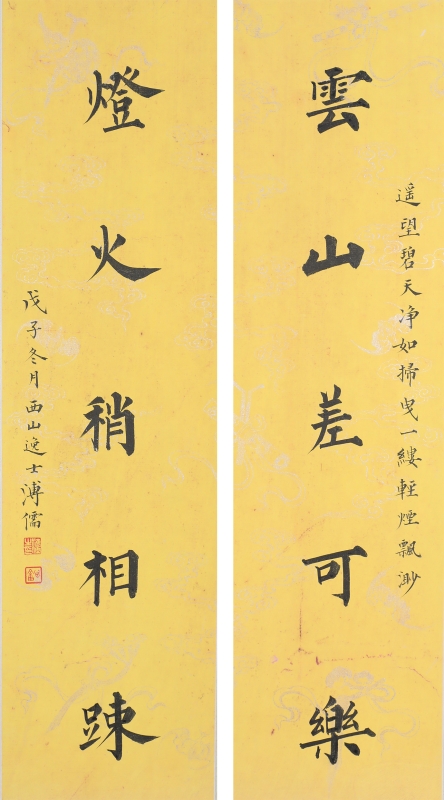 雲山差可樂
遥望碧天净如掃曳一縷輕煙飄渺
燈火稍相踈
戊子冬月西山逸士溥儒